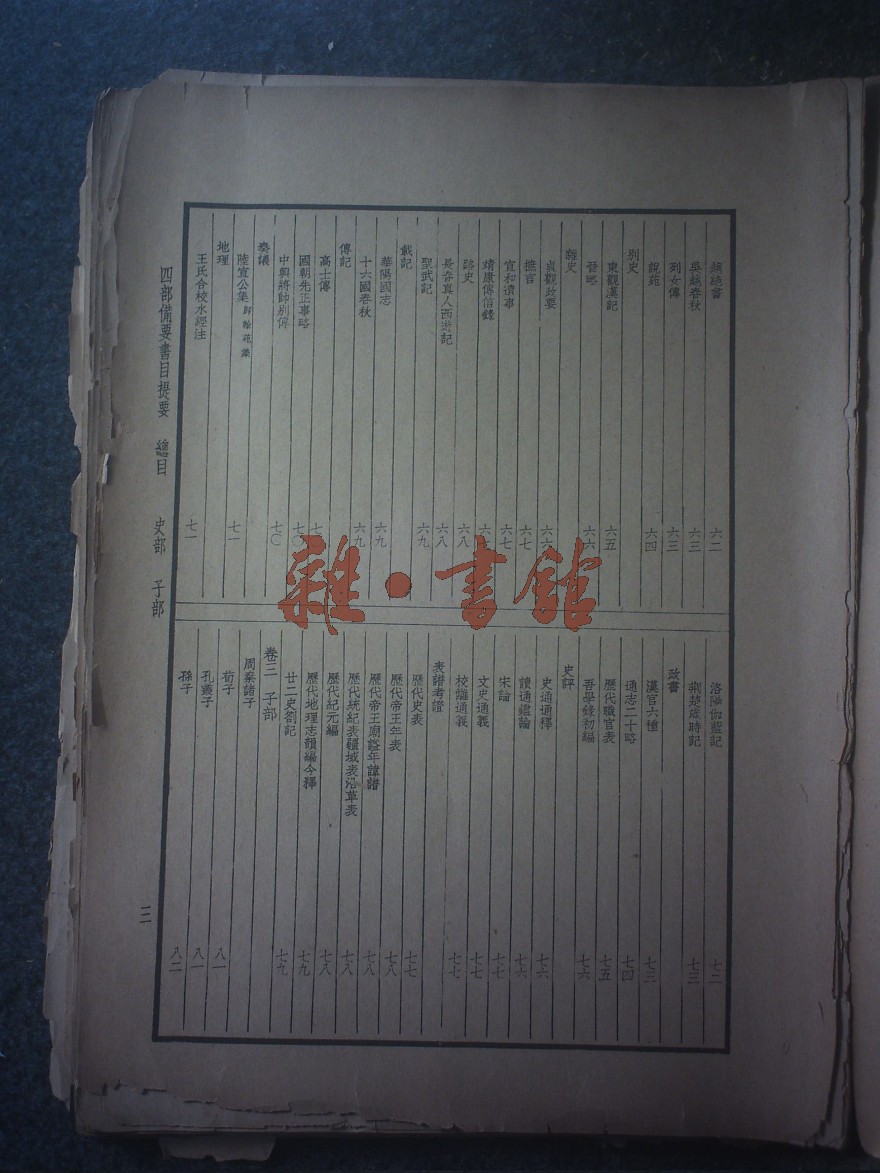 越絶書 六二
吳越春秋 六三
列女傳 六三
說苑 六四
別史
東觀漢記 六五
晉略 六六
雜史
貞觀政要
摭言 六七
宣和遺事 六七
靖康傳信錄
路史 六八
長春真人西遊記 六八
聖武記 六九
載記
華陽國志 六九
十六國春秋 六九
傳記
高士傳
國朝先正事略 七〇
中興將帥別傳 七〇
奏議
陸宣公集 即翰苑集
地理 七一
王氏合校水經注 七一
洛陽伽藍記 七二
荆楚歲時記 七三
政書
漢官六種 七三
通志二十略 七四
歷代職官表 七五
吾學錄初編 七六
史評
史通通釋 七六
讀通鑑論 七六
宋論 七七
文史通義 七七
校讎通義 七七
表譜考證
歷代史表 七七
歷代帝王年表 七八
歷代帝王廟諡年諱譜 七八
歷代統紀表疆域表沿革表 七八
歷代紀元編 七八
歷代地理志韻編今釋 七九
廿二史劄記 七九
卷三 子部
周秦諸子
荀子 八一
孔叢子 八一
孫子 八二
四部備要書目提要 總目 史部 子部 三
雜·書館